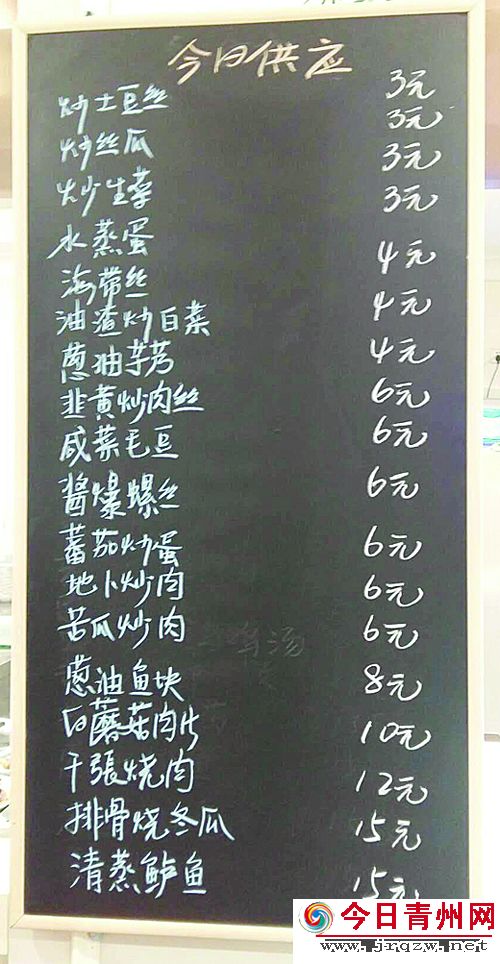 今日供应
炒土豆丝 3元
炒丝瓜 3元
炒生菜 3元
水蒸蛋 3元
海带丝 4元
油渣炒白菜 4元
葱油芋艿 4元
韭黄炒肉丝 6元
咸菜毛豆 6元
醬爆螺丝 6元
蕃茄炒蛋 6元
地卜炒肉 6元
苦瓜炒肉 6元
葱油鱼块 8元
白蘑菇肉片 10元
千張烧肉 12元
排骨烧冬瓜 15元
清蒸鲈鱼 15元
今日青州网
www.jrqzw.net